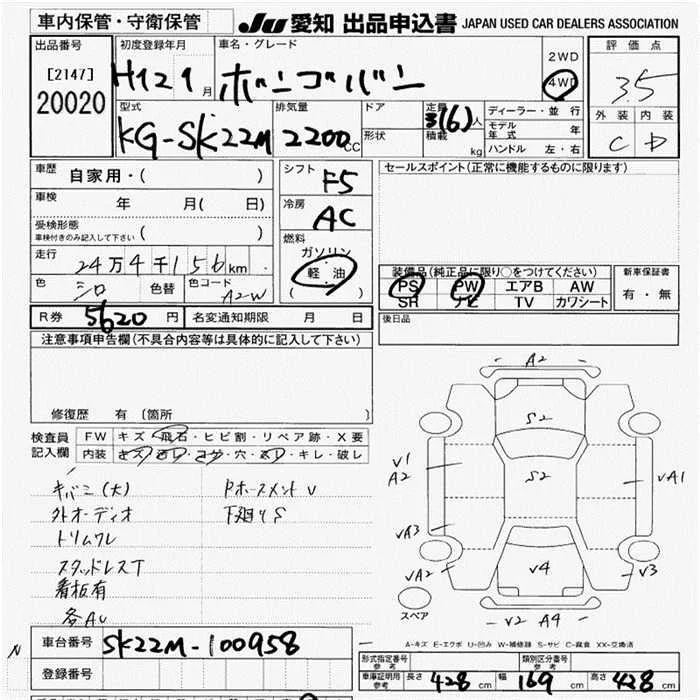 車内保管・守衛保管
JU 愛知 出品申込書 JAPAN USED CAR DEALERS ASSOCIATION
出品番号
[2147]
20020
初度登録年月
H12 1月
車名・グレード
ボンゴバン
2WD
4WD
評価点
3.5
外装 内装
C D
型式
KG-SK22M
排気量
2200cc
ドア
形状
定員
3(6)人
積載
kg
ディーラー・並行
モデル年式 年
ハンドル 左・右
車歴
自家用・( )
車検
年 月( 日)
受検形態
車検付きのみ記入して下さい ( )
走行
24万4千156km
色
シロ
色替
色コード
A2W
シフト
F5
冷房
AC
燃料
ガソリン
軽油
( )
セールスポイント(正常に機能するものに限ります)
装備品(純正品に限り○をつけてください)
PS PW エアB AW
SR ナビ TV カワシート
新車保証書
有・無
R券 5620円
名変通知期限 月 日
後日品
注意事項申告欄(不具合内容等は具体的に記入して下さい)
修復歴 有 [箇所 ]
検査員記入欄
FW キズ・飛石・ヒビ割・リペア跡・X要
内装 キズ・ヨゴレ・コゲ・穴・スレ・キレ・破レ
キバミ(大)
外オーディオ
トリムワレ
スタッドレスT
看板有
各AU
下廻りS
A2
S2
S2
V4
V1
A2
VA1
VA3
VA2
V3
V2 A4
スペア
A-キズ E-エクボ U-凹み W-補修跡 S-サビ C-腐食 XX-交換済
N
車台番号 SK22M-100958
登録番号
形式指定番号
参考
類別区分番号
参考
車庫証明用
参考
長さ 428cm
幅 169cm
高さ 428cm